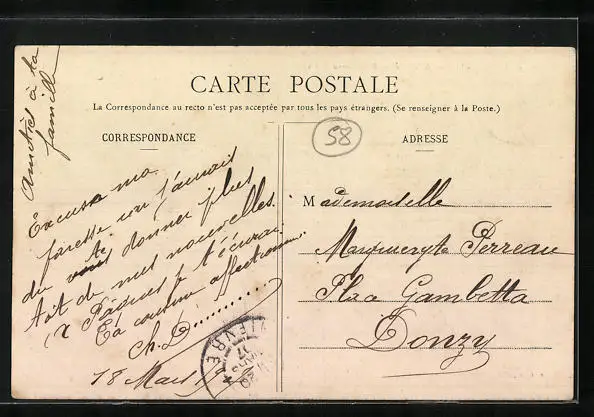 CARTE POSTALE
La Correspondance au recto n'est pas acceptée par tous les pays étrangers. (Se renseigner à la Poste.)
CORRESPONDANCE
ADRESSE
58
à ta
famille
Excuse ma
paresse
du donner plus
tôt de mes nouvelles.
(à Pâques je t'écrirai.
Ta cousine affectionnée.
Ch. D..........
18 Mars
NIEVRE
Mademoiselle
Marguerite Perreau
Place Gambetta
Donzy